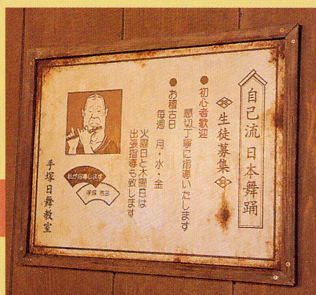 自己流 日本舞踊
生徒募集
●初心者歓迎
懇切丁寧に指導いたします
●お稽古日
毎週 月・水・金
火曜日と木曜日は
出張指導も致します
私が指導します
手塚日舞教室